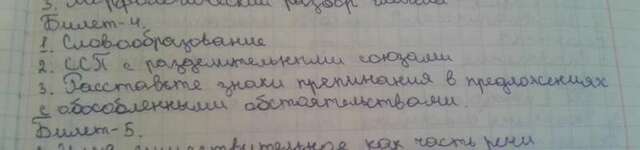 3. Морфологический разбор глагола
Билет-4.
1. Словообразование
2. ССП с разделительными союзами
3. Расставьте знаки препинания в предложениях
с обособленными обстоятельствами.
Билет-5.
1. Имя существительное как часть речи